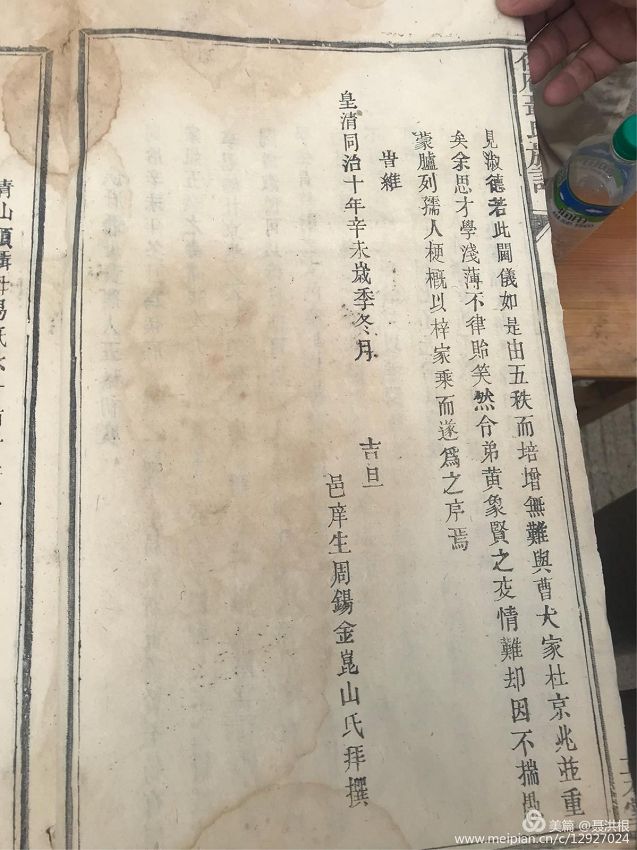 氏族譜
見淑德若此閫儀如是由五秩而培增無難與曹大家杜京兆並重
矣余思才學淺薄不律貽笑然令弟黃象賢之友情難却因不揣
蒙臚列孺人梗概以梓家乘而遂爲之序焉
旹維
皇清同治十年辛未歲季冬月　吉旦
邑庠生周錫金崑山氏拜撰
青山頭
美篇 @聂洪根
www.meipian.cn/c/12927024